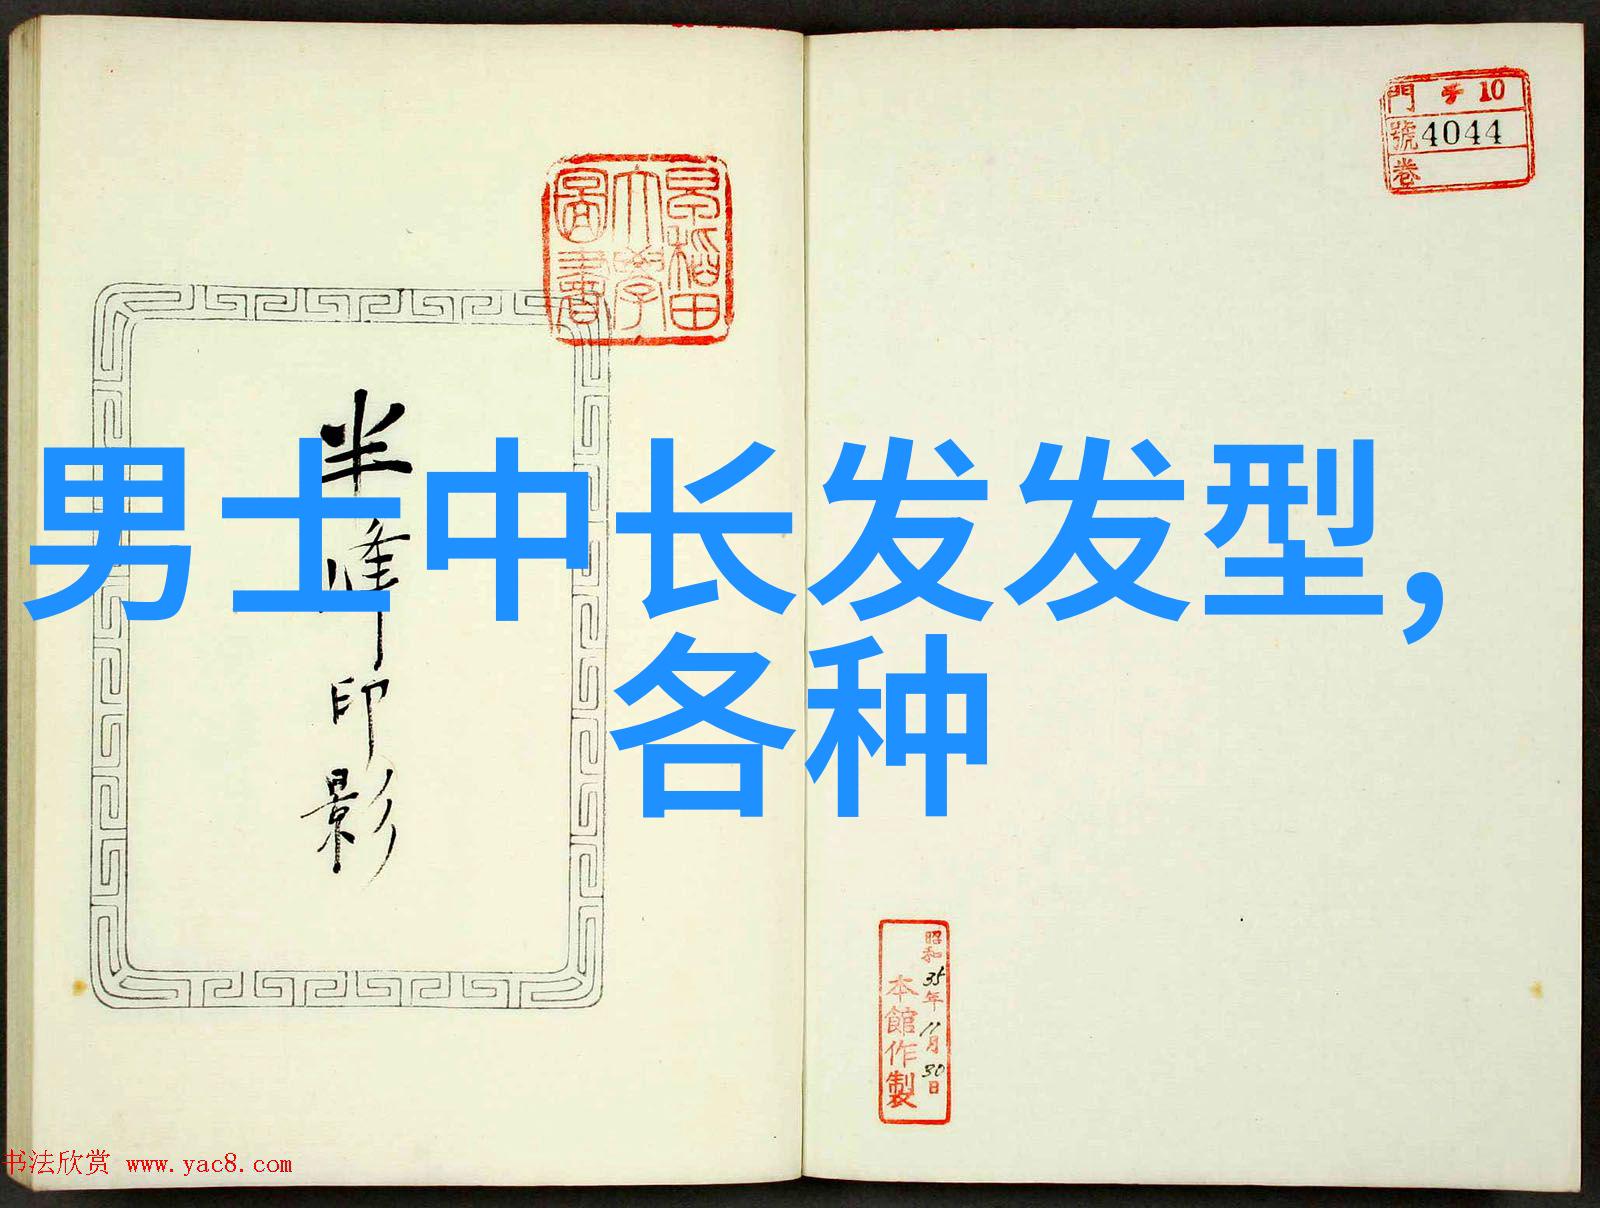 男士中长发发型,
各种
半峰印影
早稲田
大學
圖書
門 チ 10
號 4044
卷
昭和35年11月30日
本館作製
书法欣赏 www.yac8.com